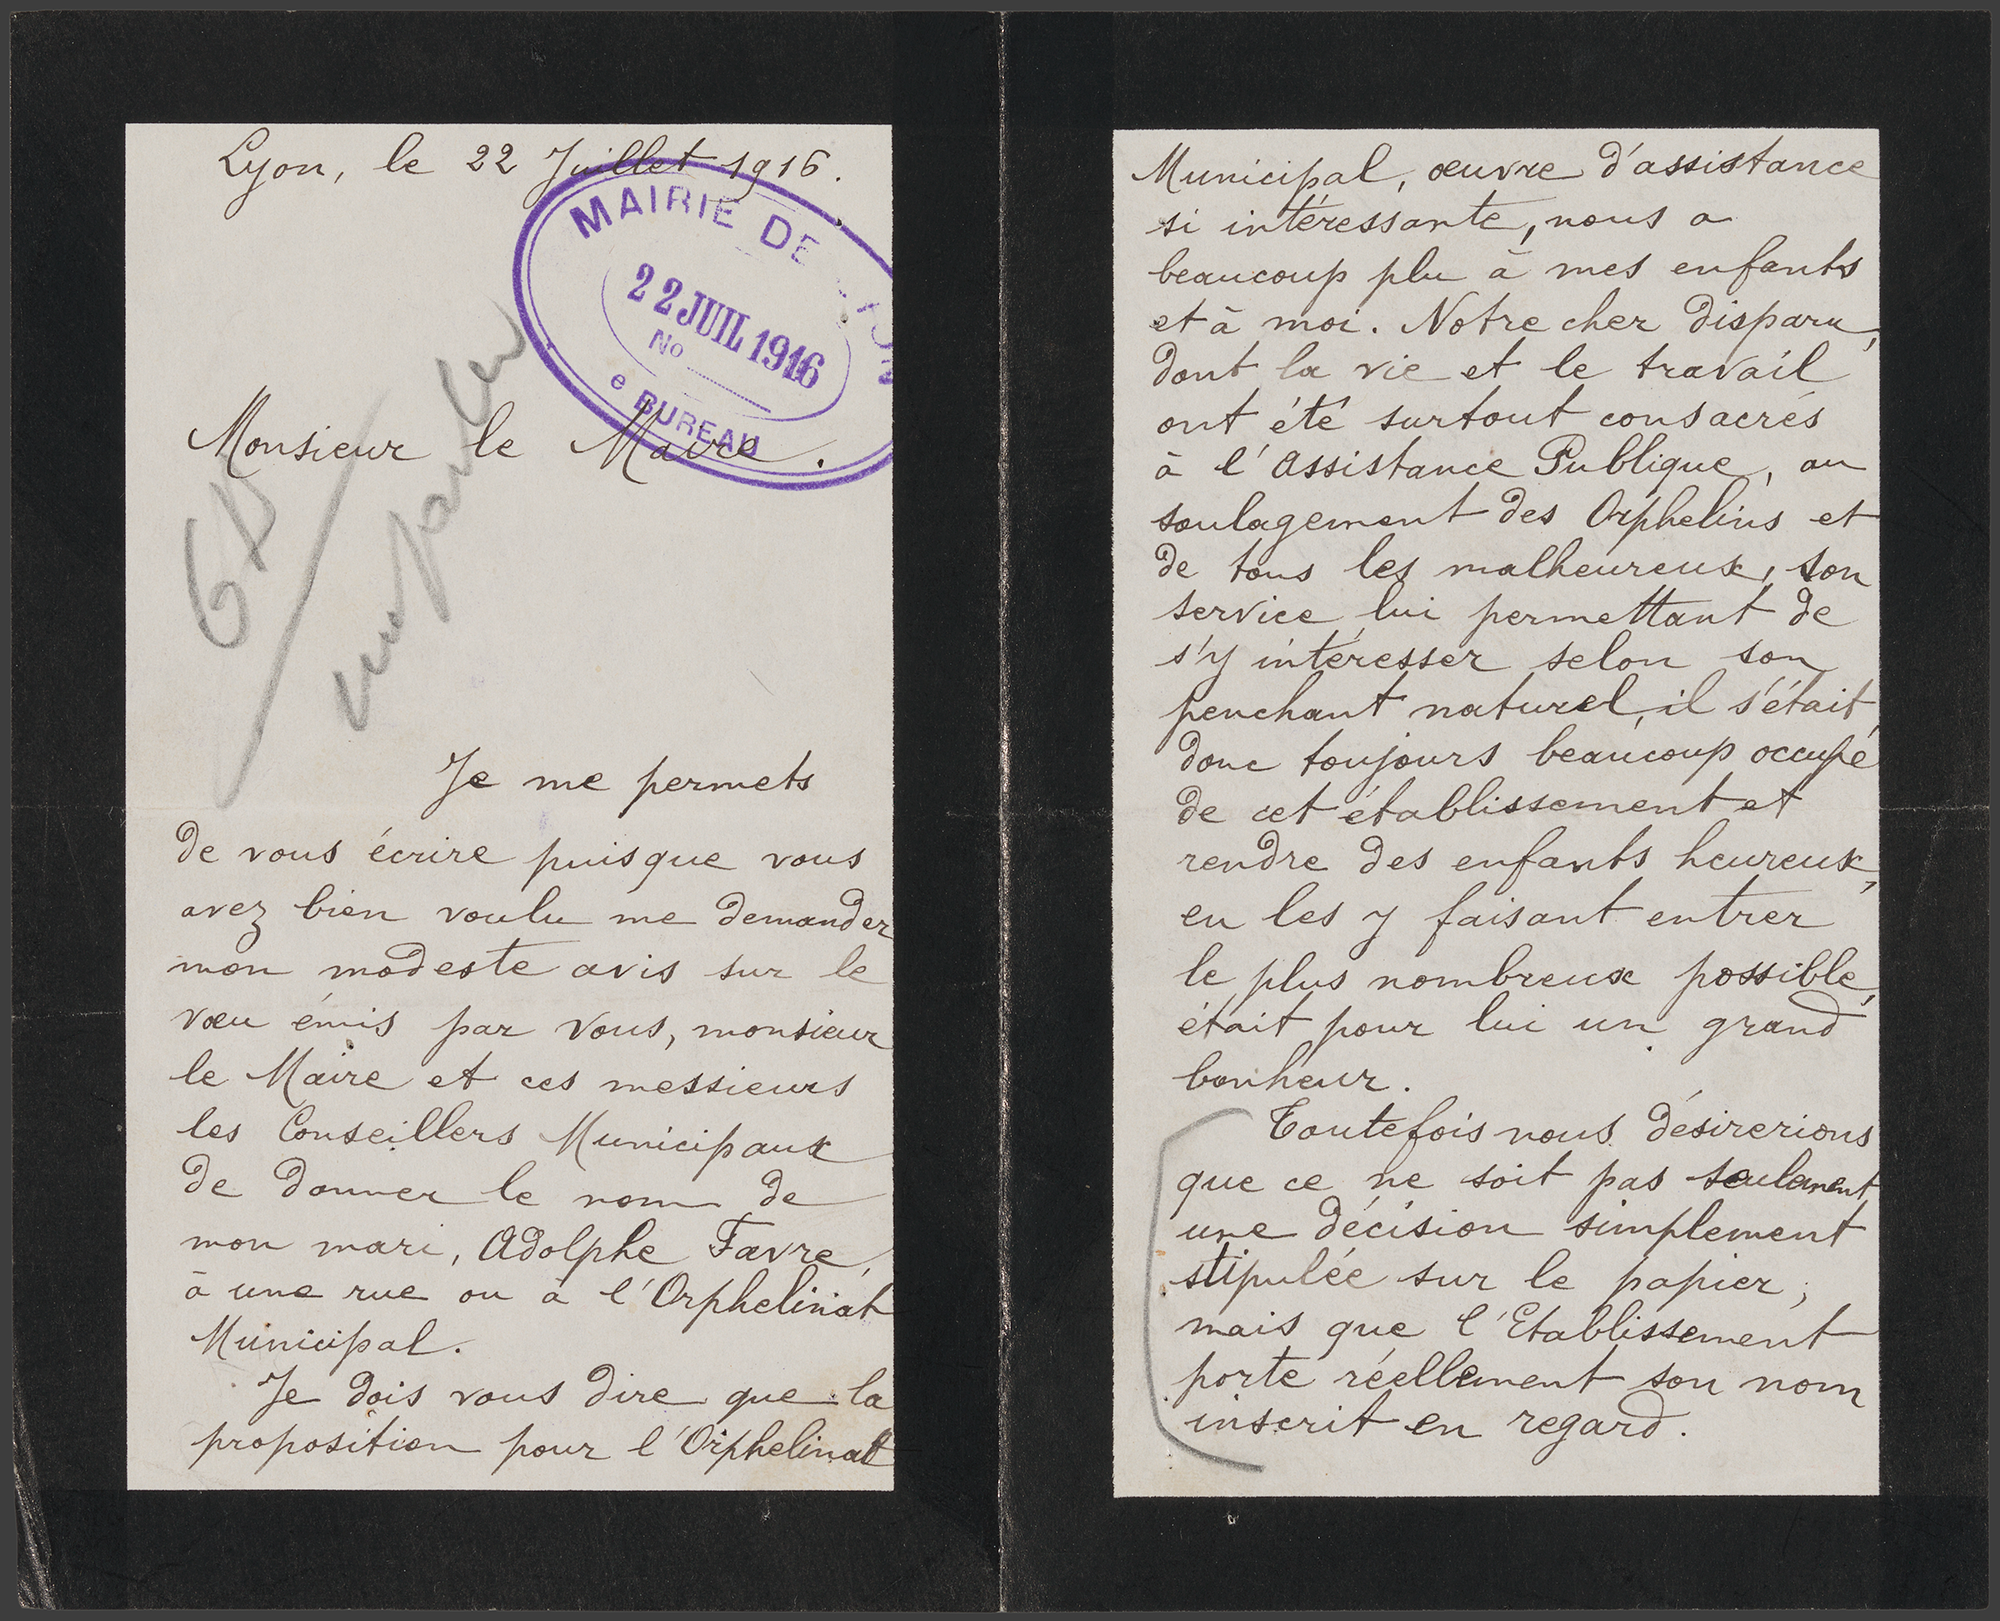 Lyon, le 22 Juillet 1916.
MAIRIE DE LYON
22 JUIL 1916
No
e BUREAU
Monsieur le Maire.
m'en parler
Je me permets
de vous écrire puisque vous
avez bien voulu me demander
mon modeste avis sur le
vœu émis par vous, monsieur
le Maire et ces messieurs
les Conseillers Municipaux
de donner le nom de
mon mari, Adolphe Favre,
à une rue ou à l'Orphelinat
Municipal.
Je dois vous dire que la
proposition pour l'Orphelinat
Municipal, œuvre d'assistance
si intéressante, nous a
beaucoup plu à mes enfants
et à moi. Notre cher disparu,
dont la vie et le travail
ont été surtout consacrés
à l'Assistance Publique, au
soulagement des Orphelins et
de tous les malheureux, son
service lui permettant de
s'y intéresser selon son
penchant naturel, il s'était
donc toujours beaucoup occupé
de cet établissement et
rendre des enfants heureux,
en les y faisant entrer
le plus nombreux possible,
était pour lui un grand
bonheur.
Toutefois nous désirerions
que ce ne soit pas seulement
une décision simplement
stipulée sur le papier,
mais que l'Etablissement
porte réellement son nom
inscrit en regard.